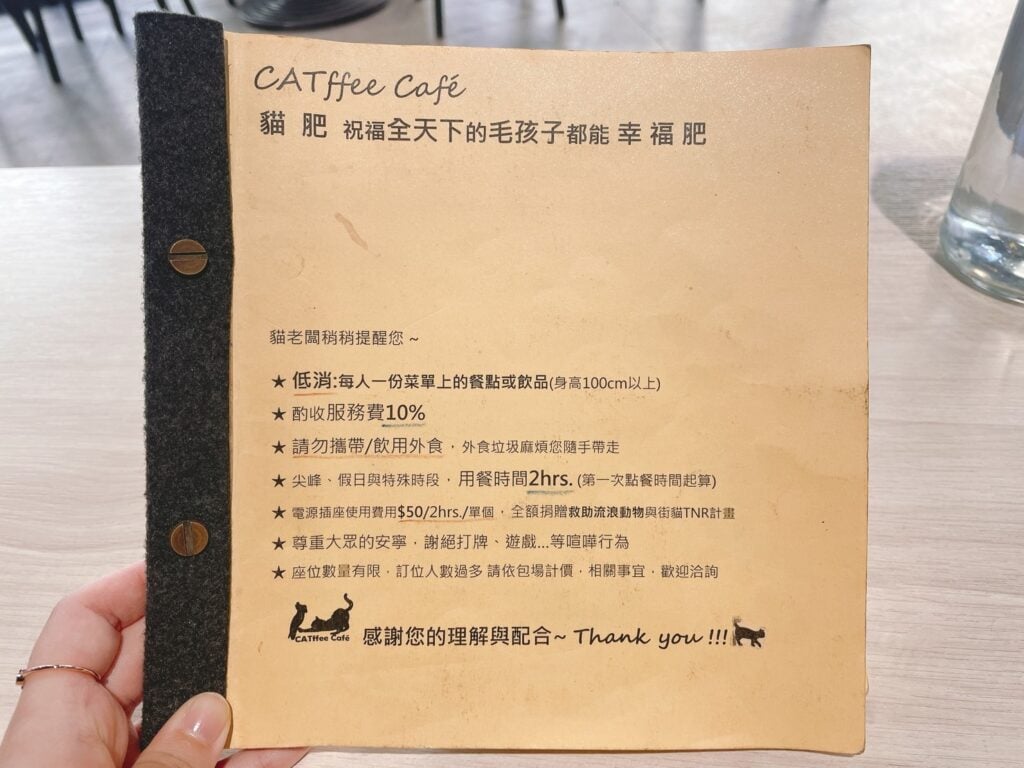 CATffee Café
貓 肥 祝福全天下的毛孩子都能 幸 福 肥
貓老闆稍稍提醒您 ~
★ 低消:每人一份菜單上的餐點或飲品(身高100cm以上)
★ 酌收服務費10%
★ 請勿攜帶/飲用外食，外食垃圾麻煩您隨手帶走
★ 尖峰、假日與特殊時段，用餐時間2hrs. (第一次點餐時間起算)
★ 電源插座使用費用$50/2hrs./單個，全額捐贈救助流浪動物與街貓TNR計畫
★ 尊重大眾的安寧，謝絕打牌、遊戲...等喧嘩行為
★ 座位數量有限，訂位人數過多 請依包場計價，相關事宜，歡迎洽詢
CATffee Café
感謝您的理解與配合~ Thank you !!!